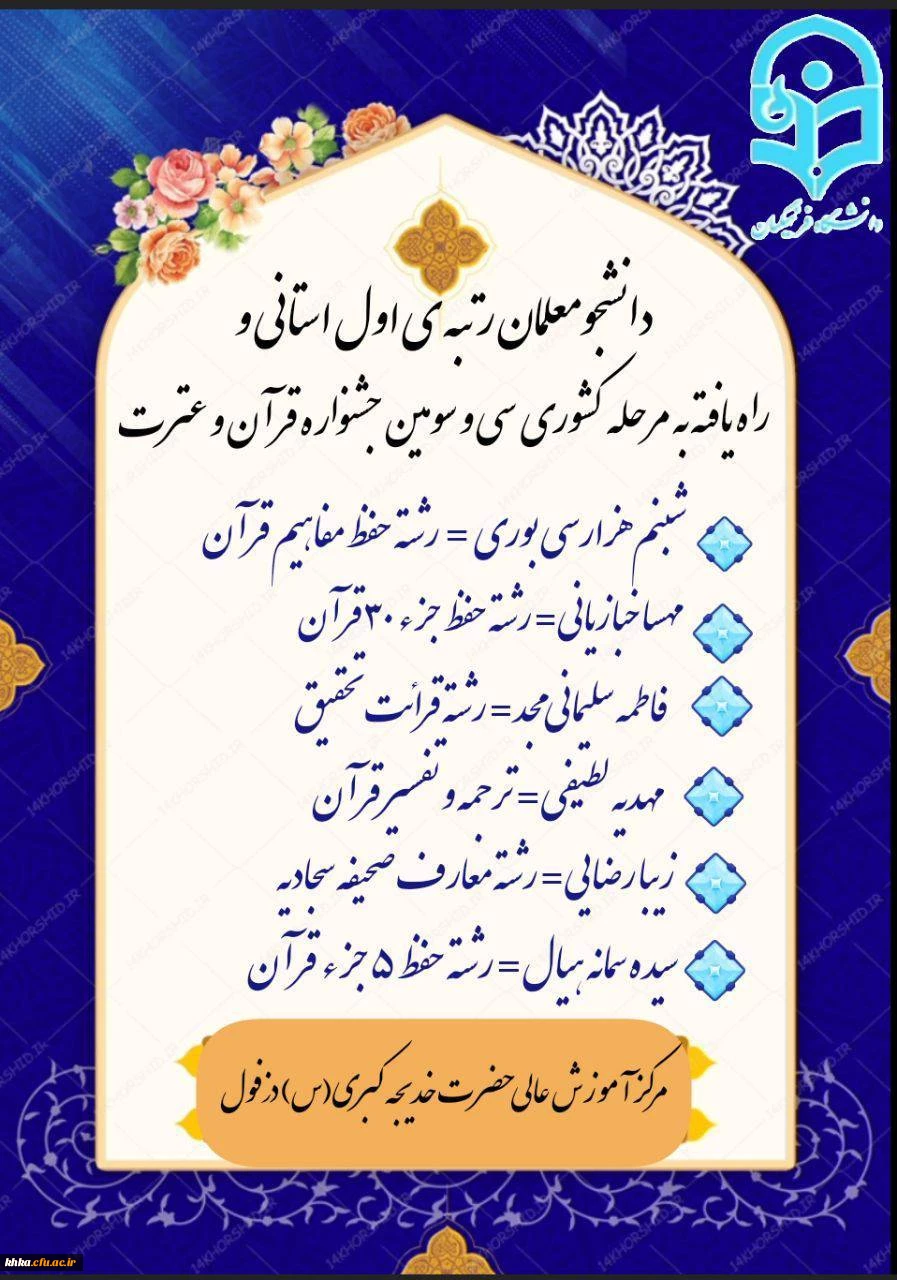 دانشگاه فرهنگیان
دانشجو معلمان رتبه ی اول استانی و
راه یافته به مرحله کشوری سی و سومین جشنواره قرآن و عترت
شبنم هزارسی بوری = رشته حفظ مفاهیم قرآن
مهسا خبازیانی = رشته حفظ جزء ۳۰ قرآن
فاطمه سلیمانی مجد = رشته قرائت تحقیق
مهدیه لطیفی = ترجمه و تفسیر قرآن
زیبا رضایی = رشته معارف صحیفه سجادیه
سیده سمانه هیال = رشته حفظ ۵ جزء قرآن
مرکز آموزش عالی حضرت خدیجه کبری(س) دزفول
khka.cfu.ac.ir
14KHORSHID.IR